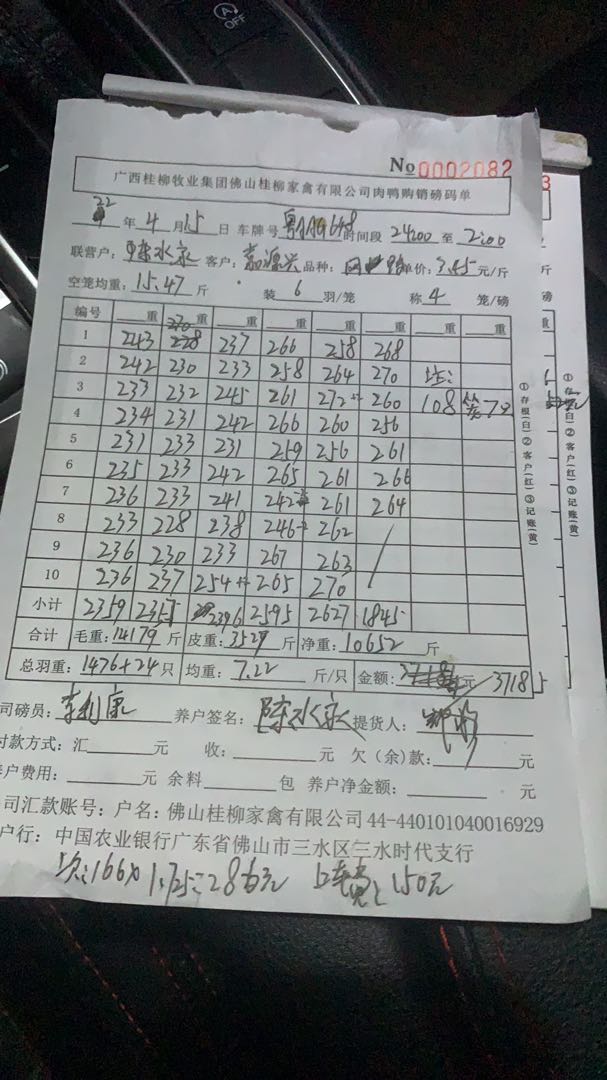 OFF
No 0002082
广西桂柳牧业集团佛山桂柳家禽有限公司肉鸭购销磅码单
22 年 4 月 15 日 车牌号 时间段 24:00 至 2:00
联营户: 陈水永 客户: 嘉源兴 品种: 单价: 3.45 元/斤
空笼均重: 15.47 斤 装 6 羽/笼 称 4 笼/磅
编号 重 重 重 重 重 重 重 重
1 243 228 237 266 258 268
2 242 230 233 258 264 270
3 233 232 245 261 272 260 108 笼
4 234 231 242 266 260 256
5 231 233 231 259 256 261
6 235 233 242 265 261 266
7 236 233 241 242 261 264
8 233 228 238 246 262
9 236 230 233 267 263
10 236 237 254 265 270
小计 2359 2355 2396 2595 2627 1845
合计 毛重: 14179 斤 皮重: 3527 斤 净重: 10652 斤
总羽重: 1476+24 只 均重: 7.22 斤/只 金额: 元 37185
司磅员: 李利康 养户签名: 陈水永 提货人:
付款方式: 汇 元 收: 元 欠(余)款: 元
养户费用: 元 余料 包 养户净金额: 元
司汇款账号: 户名: 佛山桂柳家禽有限公司 44-440101040016929
户行: 中国农业银行广东省佛山市三水区三水时代支行
166× 1.725=286元 150元
①存根(白)②客户(红)③记账(黄)
①存根(白)②客户(红)③记账(黄)